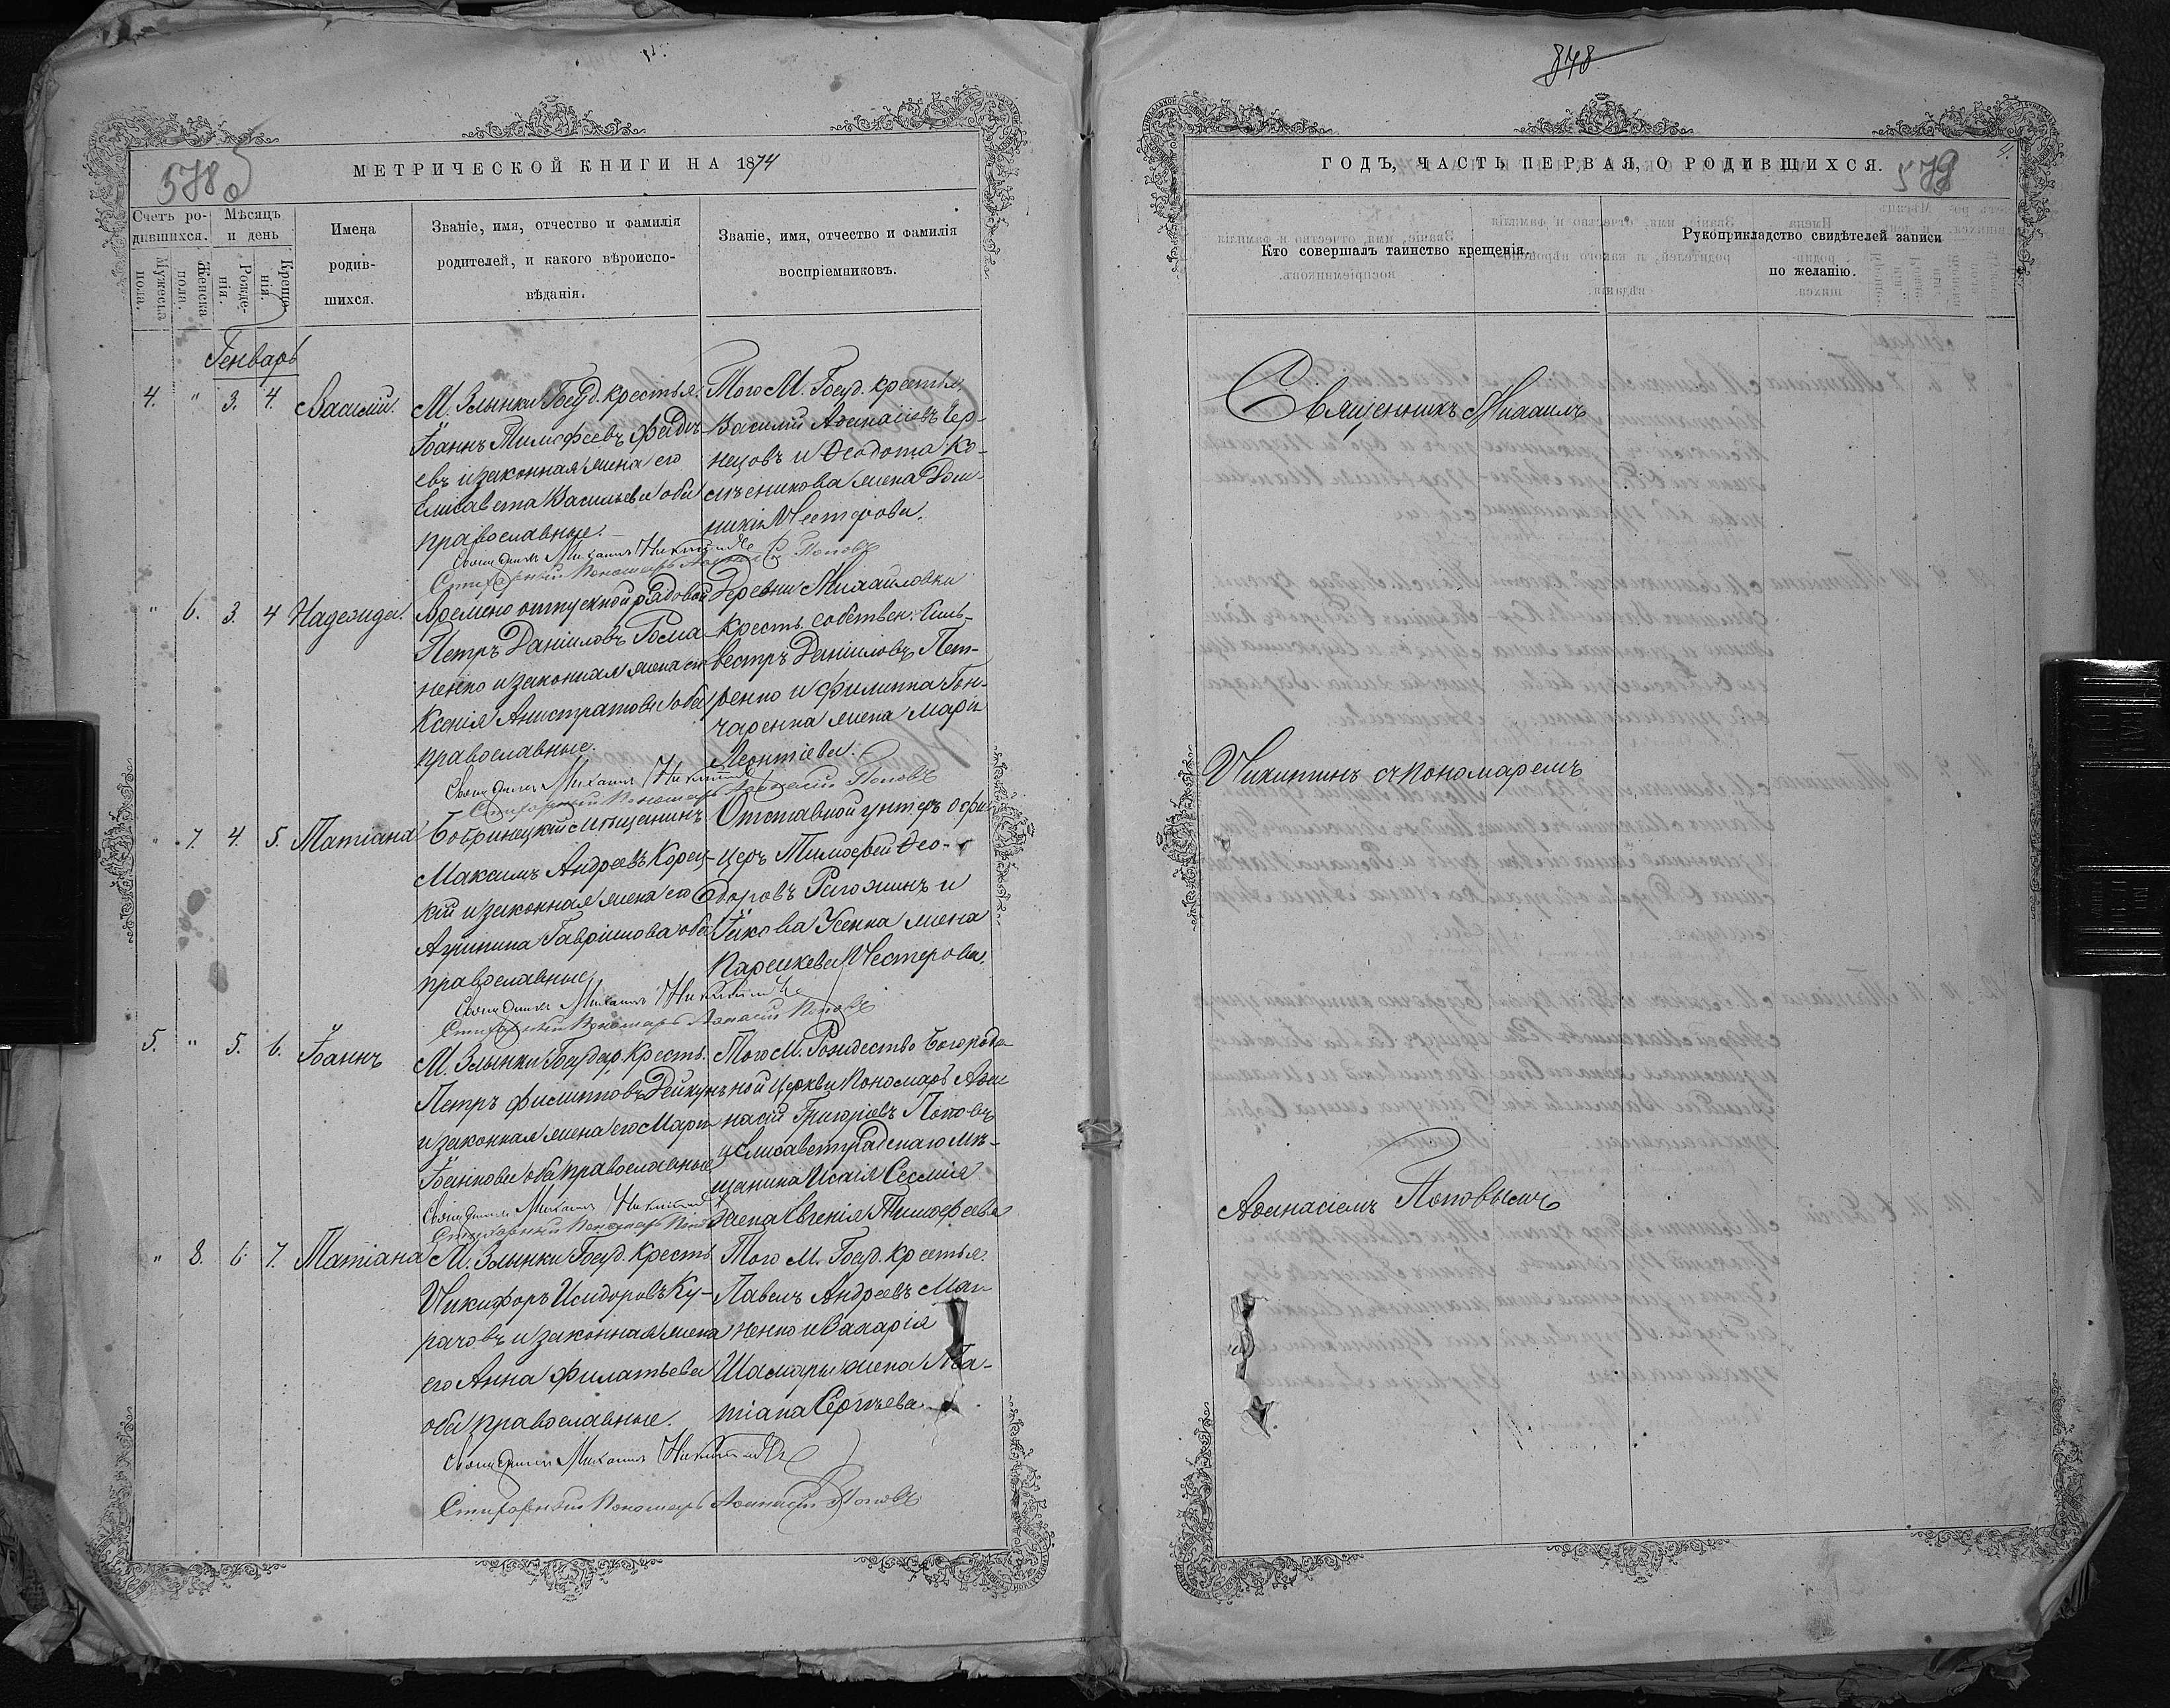 848
МЕТРИЧЕСКОЙ КНИГИ НА 1874
578
Счетъ ро-
дившихся.
Мѣсяцъ
и день
Мужеска
пола.
Женска
пола.
Рожде-
нія.
Креще-
нія.
Имена
родив-
шихся.
Званіе, имя, отчество и фамилія
родителей, и какого вѣроиспо-
вѣданія.
Званіе, имя, отчество и фамилія
воспріемниковъ.
Генварь
4. " 3. 4. Василій.
М. Злынки Госуд. крестья.
Іоаннъ Тимофеевъ
евъ и законная жена его
Елисавета Васильева оба
православные.
Священникъ Михаилъ Никитинъ
Стихарный Пономарь Поповъ
Того М. Госуд. крестья
Василій Аѳанасіевъ Чер-
нецовъ и Ѳеодота
жена
Нестерова.
" 6. 3. 4 Надежда.
Времено отпускной рядовой
Петръ Даніиловъ Рома-
ненко и законная жена его
Ксенія Анистратова оба
православные.
Священникъ Михаилъ Никитинъ
Стихарный Пономарь Аѳанасій Поповъ
Деревни Михайловки
Кресть. собствен. Силь-
вестръ Даніиловъ Пет-
ренко и Филиппа Гон-
чаренка жена Марѳа
Леонтіева.
" 7. 4. 5. Татіана
Бобринецкій мѣщанинъ
Максимъ Андреевъ Корец-
кій и законная жена его
Агрипина Гавріилова оба
православные
Священникъ Михаилъ Никитинъ
Стихарный Пономарь Аѳанасій Поповъ
Отставной унтеръ офи-
церъ Тимофей Ѳео-
доровъ Рагожинъ и
Іякова Усенка жена
Параскева Нестерова.
5. " 5. 6. Іоаннъ
М. Злынки Государ. Кресть.
Петръ Филипповъ Дейкунъ
и законная жена его Марѳа
Іоаннова оба православные
Священникъ Михаилъ Никитинъ
Стихарный Пономарь
Того М. Рождество Богороди-
чной церкви Пономарь Аѳа-
насій Григоріевъ Поповъ
и Елисаветградскаго мѣ-
щанина Исаія
жена Евгенія Тимофеева
" 8. 6. 7. Татіана
М. Злынки Госуд. Кресть
Никифоръ Исидоровъ Ку-
рачовъ и законная жена
его Анна Филатьева
оба православные.
Священникъ Михаилъ Никитинъ
Стихарный Пономарь Аѳанасій Поповъ
Того М. Госуд. крестья.
Павелъ Андреевъ
ненко и Захарія
жена Та-
тіана Сергѣева.
ГОДЪ, ЧАСТЬ ПЕРВАЯ, О РОДИВШИХСЯ.
4.
579
Кто совершалъ таинство крещенія.
Рукоприкладство свидѣтелей записи
по желанію.
Священникъ Михаилъ
Никитинъ съ Пономаремъ
Аѳанасіемъ Поповымъ